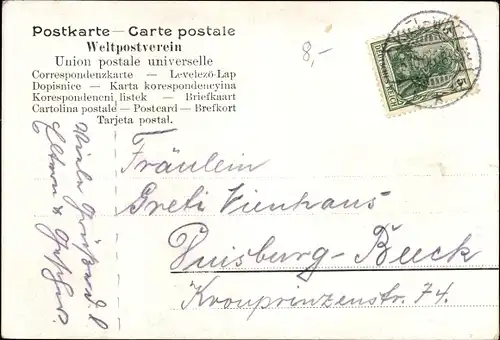 Postkarte — Carte postale
Weltpostverein
Union postale universelle
Correspondenzkarte — Levelező-Lap
Dopisnice — Karta korespondencyjna
Korespondenční listek — Briefkaart
Cartolina postale — Postcard — Brefkort
Tarjeta postal.
8,-
5
Fräulein
Greti Vienhaus
Duisburg-Beeck
Kronprinzenstr. 74.
Viele Grüße
Eltern &